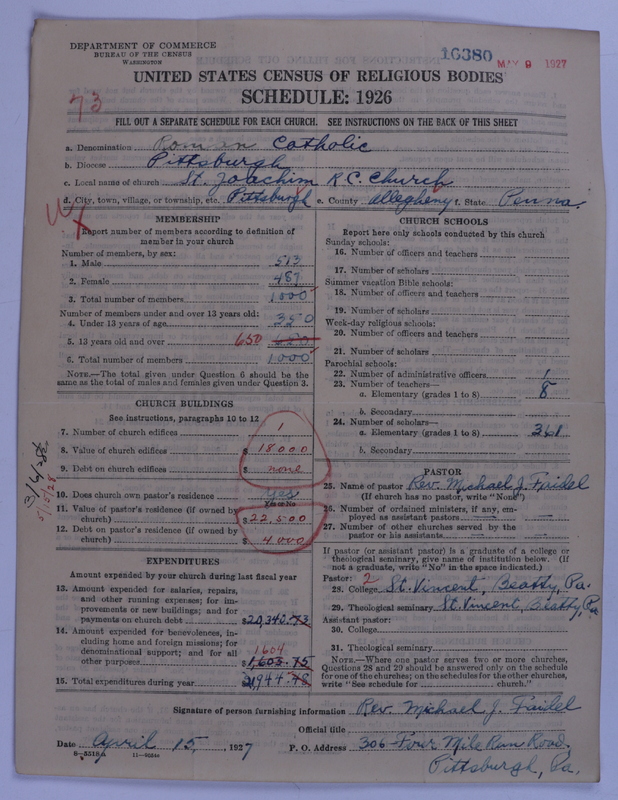 DEPARTMENT OF COMMERCE
BUREAU OF THE CENSUS
WASHINGTON
16380
MAY 9 1927
UNITED STATES CENSUS OF RELIGIOUS BODIES
SCHEDULE: 1926
73
FILL OUT A SEPARATE SCHEDULE FOR EACH CHURCH. SEE INSTRUCTIONS ON THE BACK OF THIS SHEET
a. Denomination Roman Catholic
b. Diocese Pittsburgh
c. Local name of church St. Joachim R.C. Church
d. City, town, village, or township, etc. Pittsburgh e. County Allegheny f. State Penna.
MEMBERSHIP
Report number of members according to definition of
member in your church
Number of members, by sex:
1. Male 513
2. Female 487
3. Total number of members 1000
Number of members under and over 13 years old:
4. Under 13 years of age 350
5. 13 years old and over 650
6. Total number of members 1000
NOTE.—The total given under Question 6 should be the
same as the total of males and females given under Question 3.
CHURCH BUILDINGS
See instructions, paragraphs 10 to 12
7. Number of church edifices 1
8. Value of church edifices $ 18000
9. Debt on church edifices $ none
3/6/28
5/21/28
10. Does church own pastor's residence Yes
Yes or No
11. Value of pastor's residence (if owned by
church) $ 22,500
12. Debt on pastor's residence (if owned by
church) $ 4000
EXPENDITURES
Amount expended by your church during last fiscal year
13. Amount expended for salaries, repairs,
and other running expenses; for im-
provements or new buildings; and for
payments on church debt $20,340.73
14. Amount expended for benevolences, in-
cluding home and foreign missions; for
denominational support; and for all
other purposes $1,603.75
1604
15. Total expenditures during year $21,944.48
CHURCH SCHOOLS
Report here only schools conducted by this church
Sunday schools:
16. Number of officers and teachers
17. Number of scholars
Summer vacation Bible schools:
18. Number of officers and teachers
19. Number of scholars
Week-day religious schools:
20. Number of officers and teachers
21. Number of scholars
Parochial schools:
22. Number of administrative officers 1
23. Number of teachers—
a. Elementary (grades 1 to 8) 8
b. Secondary
24. Number of scholars—
a. Elementary (grades 1 to 8) 361
b. Secondary
PASTOR
25. Name of pastor Rev. Michael J. Faidel
(If church has no pastor, write "None")
26. Number of ordained ministers, if any, em-
ployed as assistant pastors
27. Number of other churches served by the
pastor or his assistants
If pastor (or assistant pastor) is a graduate of a college or
theological seminary, give name of institution below. (If
not a graduate, write "No" in the space indicated.)
Pastor: 2
28. College St. Vincent, Beatty, Pa.
29. Theological seminary St. Vincent, Beatty, Pa
Assistant pastor:
30. College
31. Theological seminary
NOTE.—Where one pastor serves two or more churches,
Questions 28 and 29 should be answered only on the schedule
for one of the churches; on the schedules for the other churches,
write "See schedule for church."
Signature of person furnishing information Rev. Michael J. Faidel
Official title
Date April 15, 1927 P. O. Address 306-Four Mile Run Road,
Pittsburgh, Pa.